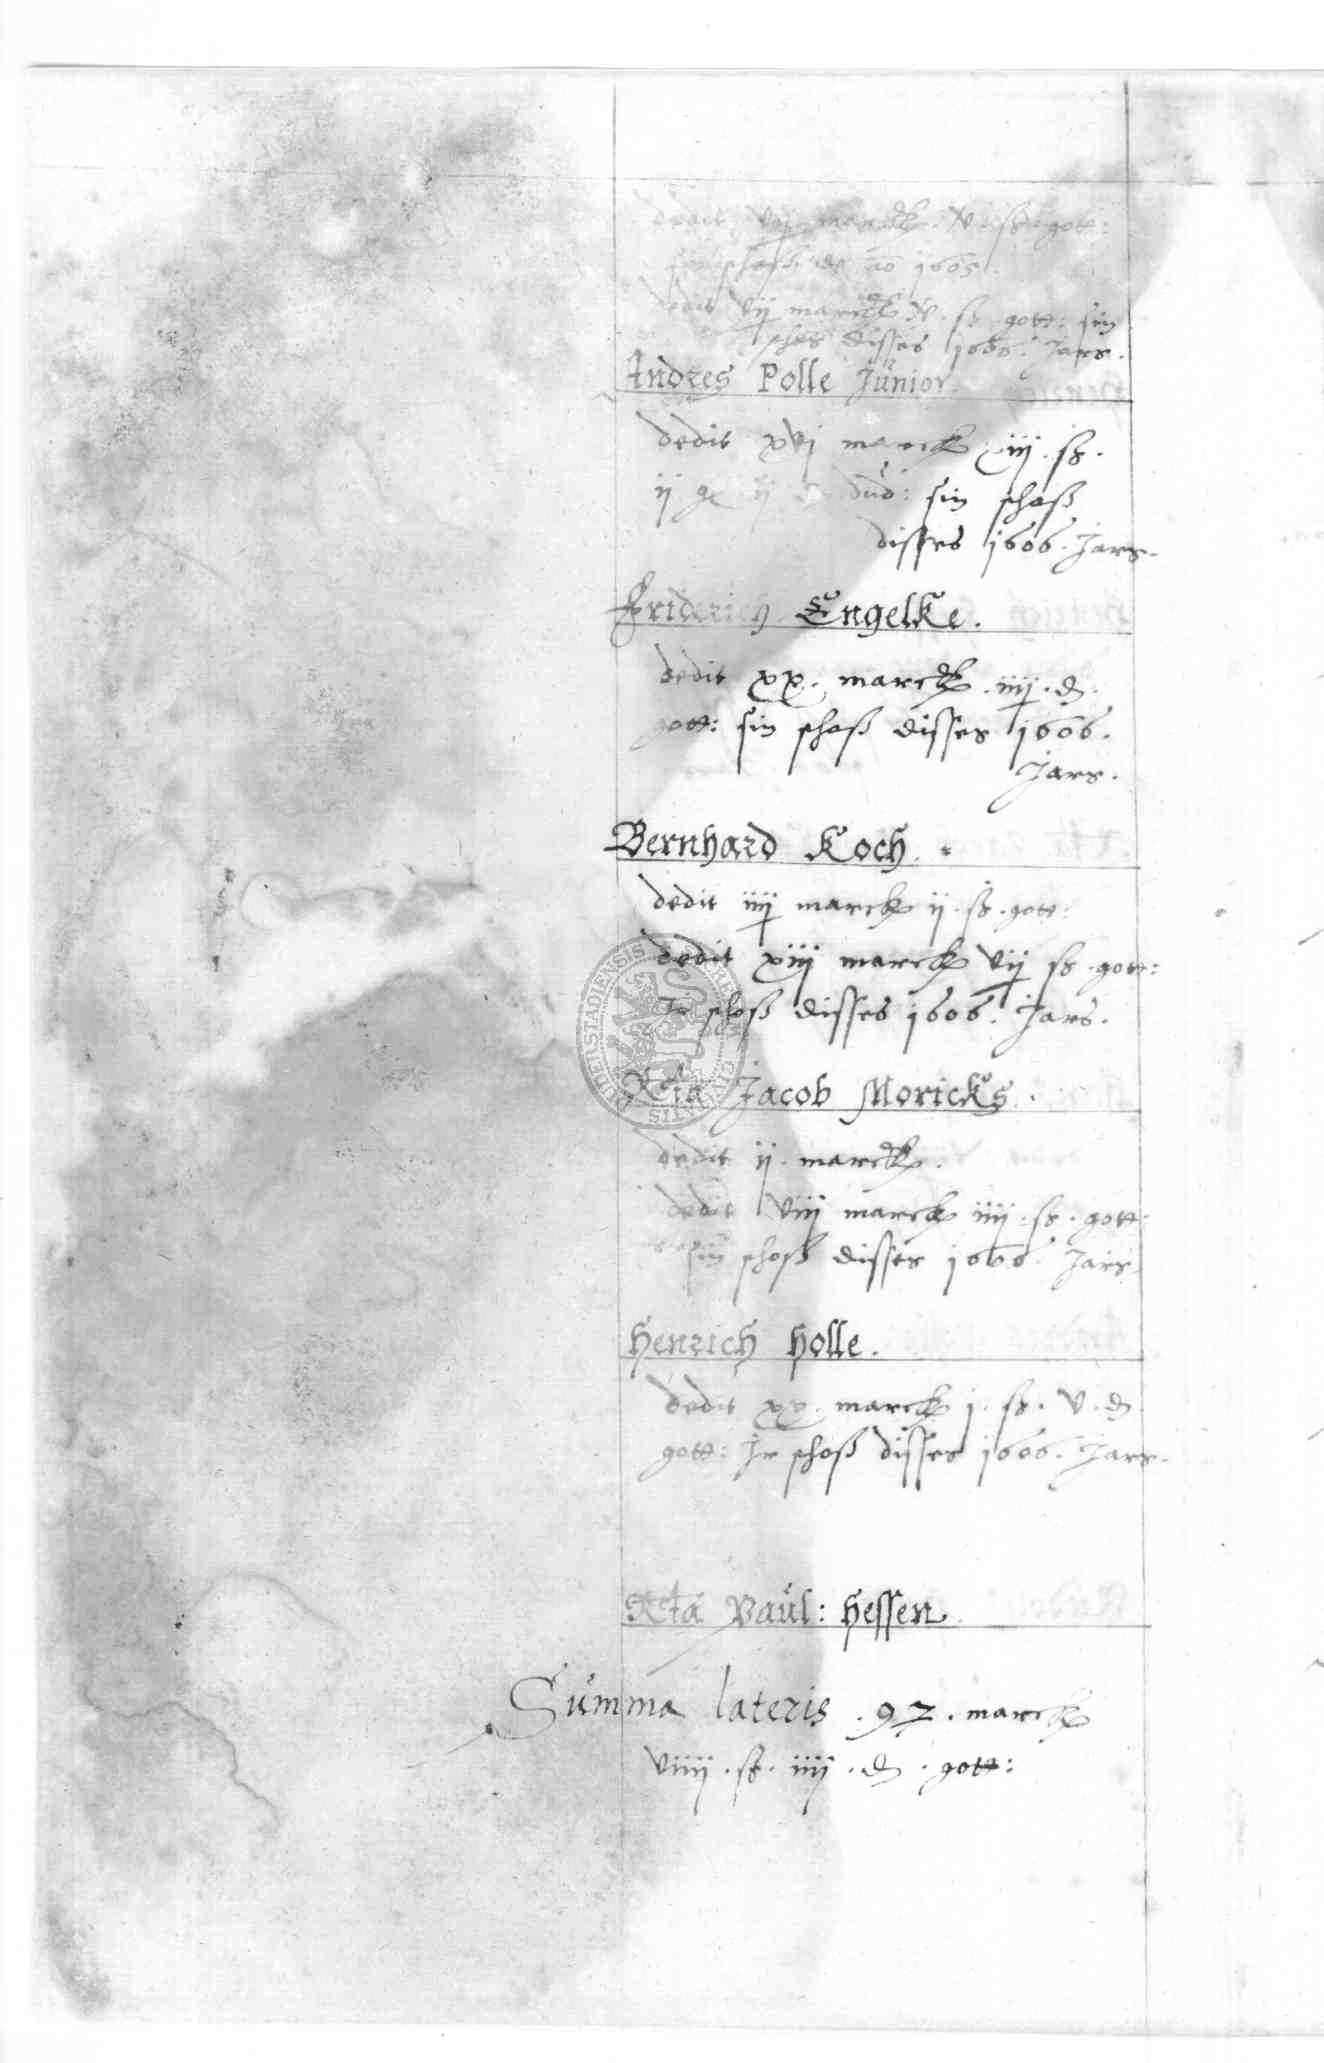 dedit vij marck . v . ß . gott:
schoß de ao 1605.
dedit vij marck v . ß gott: sin
schos disses 1606. Jars.
Andres Polle Junior
dedit xvj marck xiij . ß .
ij dud: sin schoß
disses 1606. Jars.
Friderich Engelke.
dedit xx. marck . iiij . d.
gott: sin schoß disses 1606.
Jars.
Bernhard Koch.
dedit iiij marck ij . ß . gott:
dedit xiij marck vij ß . gott:
Jr schoß disses 1606. Jars.
Rta Jacob Moricks.
dedit ij . marck.
dedit viij marck iiij . ß . gott:
sin schoß disses 1606. Jars.
Henrich Holle.
dedit xx. marck j . ß . v . d
gott: Jr schoß disses 1606. Jars.
Rta Paul: Hessen.
Summa lateris . 97 . marck
viiij . ß . iiij . d . gott: